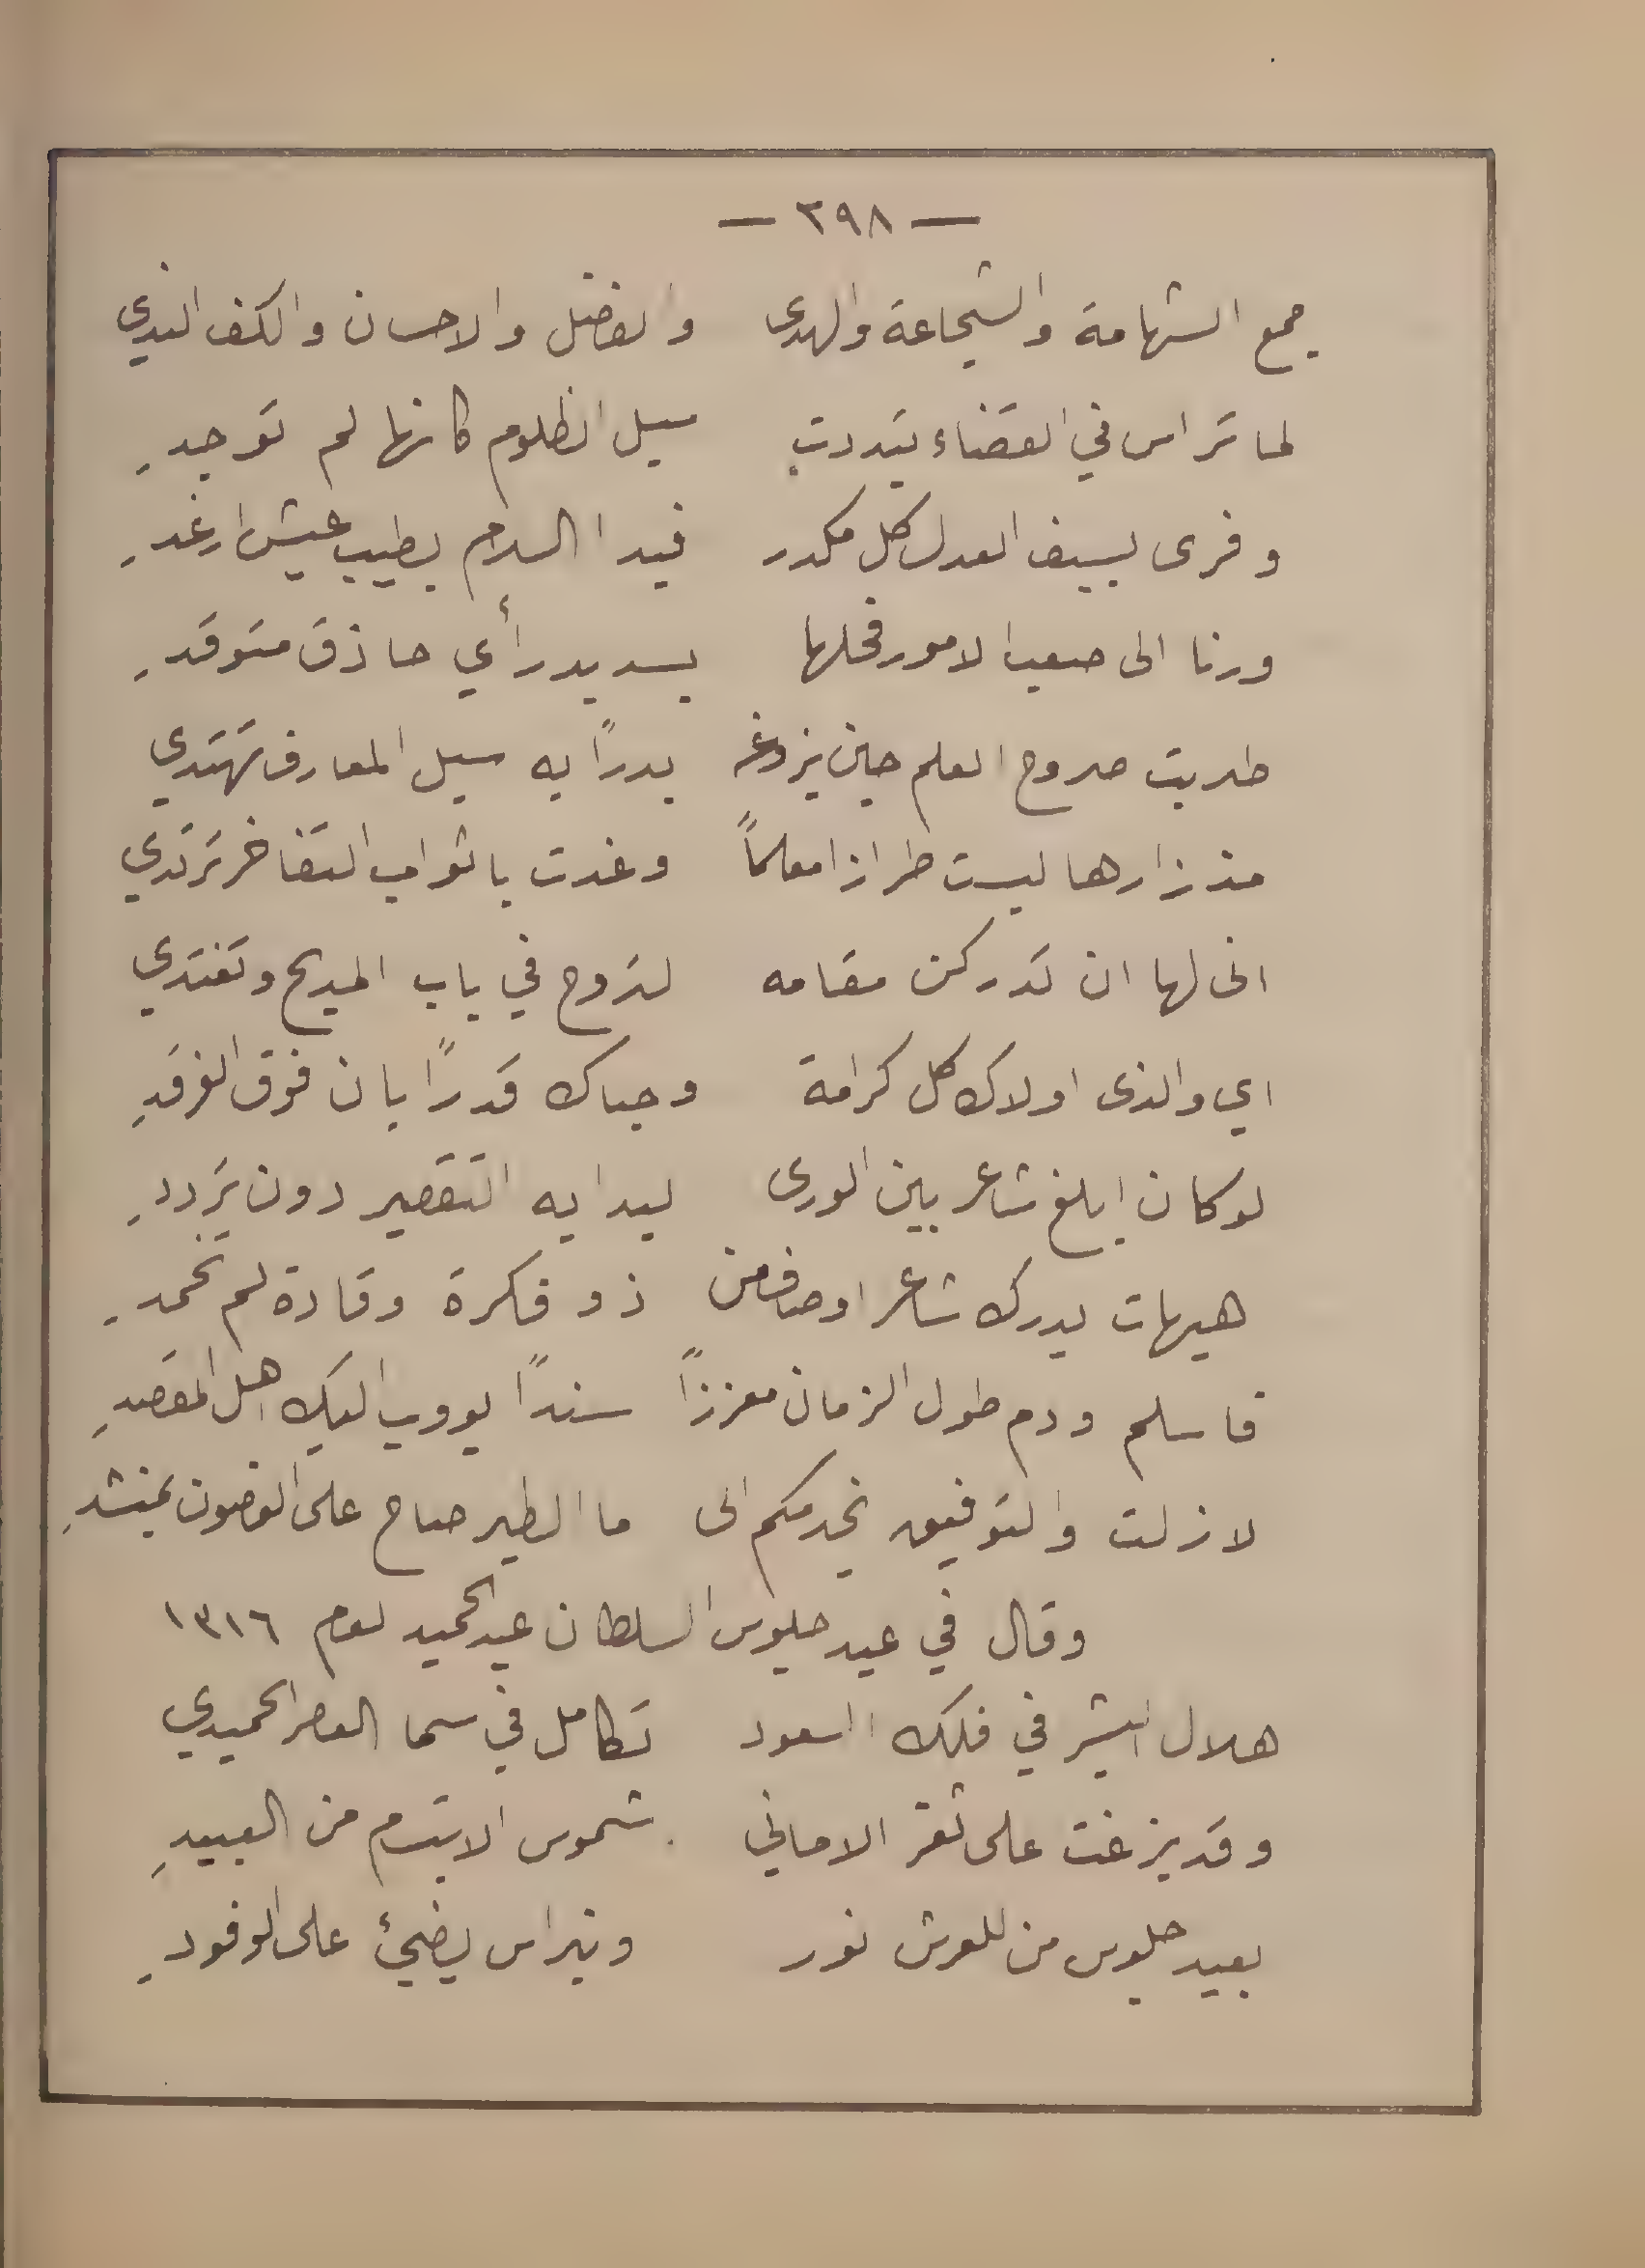 — ٢٩٨ —
جمع الشهامة والشجاعة والهدى والفضل والاحسان والكف الندي
لما ترٲس في القضاء تبددت سبل الظلوم كانها لم توجدِ
وفرى بسيف العدل كل مكدر فبدا السلام بطيب عيش ارغدِ
ورنا الى صعب الامور فحلها بسديد رأي حاذق متوقدِ
طربت صروح العلم حين بزوغه بدرًا به سبل المعارف تهتدي
مذ زارها لبست طرازا معلماً وغدت باثواب التفاخر ترتدي
انى لها ان تدركن مقامه لتروح في باب المديح وتغتدي
اي والذى اولاك كل كرامة وحباك قدرًا بان فوق الفرقدِ
لو كان ابلغ شاعر بين الورى لبدا به التقصير دون ترددِ
هيهات يدرك شاعر اوصاف من ذو فكرة وقادة لم تخمدِ
فاسلم ودم طول الزمان معززاً سندًا يووب اليك اهل المقصدِ
لازلت والتوفيق يخدمكم الى ما الطير صاح على الغصون بمنشدِ
وقال في عيد جلوس السلطان عبد الحميد لعام ١٣١٦
هلال البشر في فلك السعود تكامل في سما العصر الحميدي
وقد بزغت على ثغر الاماني شموس الابتسام من العبيدِ
بعيد جلوس من للعرش نور ونبراس يضيئ على الوفودِ